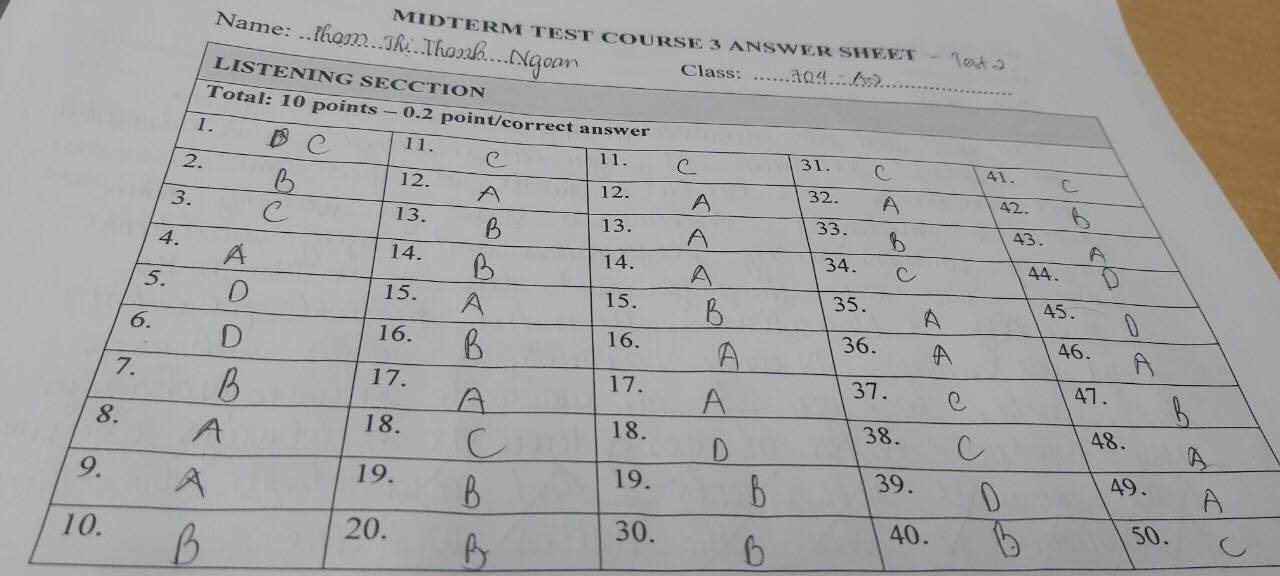 MIDTERM TEST COURSE 3 ANSWER SHEET - Test 2
Name: ..Pham..Thi..Thanh....Ngoan
Class: ......704-A02..............................
LISTENING SECCTION
Total: 10 points – 0.2 point/correct answer
1. C 11. C 11. C 31. C 41. C
2. B 12. A 12. A 32. A 42. B
3. C 13. B 13. A 33. B 43. A
4. A 14. B 14. A 34. C 44. D
5. D 15. A 15. B 35. A 45. D
6. D 16. B 16. A 36. A 46. A
7. B 17. A 17. A 37. C 47. B
8. A 18. C 18. D 38. C 48. A
9. A 19. B 19. B 39. D 49. A
10. B 20. B 30. B 40. B 50. C